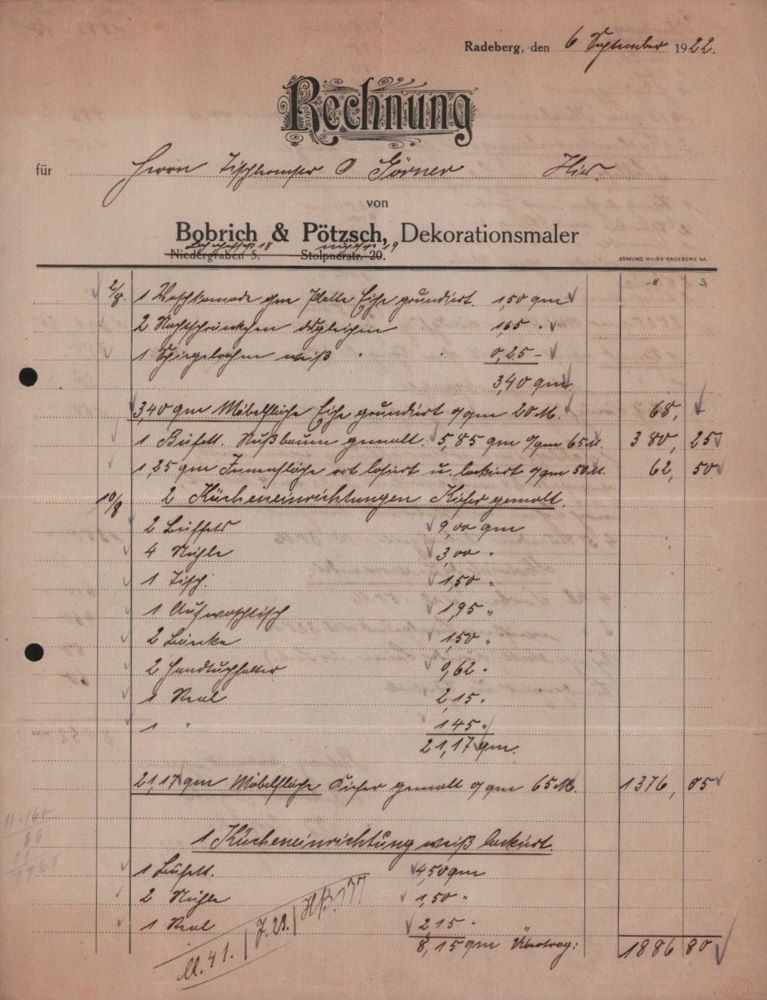 Radeberg, den 6 September 1922.
Rechnung
für Herrn Tischlermstr O Görner Hier.
von
Bobrich & Pötzsch, Dekorationsmaler
Niedergraben 5. Stolpnerstr. 20.
EDMUND WEISS RADEBERG SA.
2/8. 1 Waschkomode ohne Platte Eiche grundiert. 1,50 qm
2 Nachtschränkchen desgleichen 1,65 "
1 Spiegelrahmen weiß " " 0,25 –
3,40 qm
3,40 qm Möbelfläche Eiche grundiert à qm 20 M. 68,
1 Büfett. Nußbaum gemalt. 5,85 qm à qm 65 M. 380, 25
1,25 qm Innenfläche rot lasiert u. lackiert à qm 50 M. 62, 50
10/8 2 Kücheneinrichtungen Kiefer gemalt.
2 Büffets 9,00 qm
4 Stühle 3,00 "
1 Tisch. 1,50 "
1 Aufwaschtisch 1,95 "
2 Bänke 1,50 "
2 Handtuchhalter 0,62 "
1 Real 2,15 "
1 " 1,45 "
21,17 qm.
21,17 qm Möbelfläche Kiefer gemalt à qm 65 M. 1376, 05
1 Kücheneinrichtung weiß lackiert.
1 Büfett. 4,50 qm
2 Stühle 1,50 "
1 Real 2,15 "
8,15 qm Übertrag: 1886 80